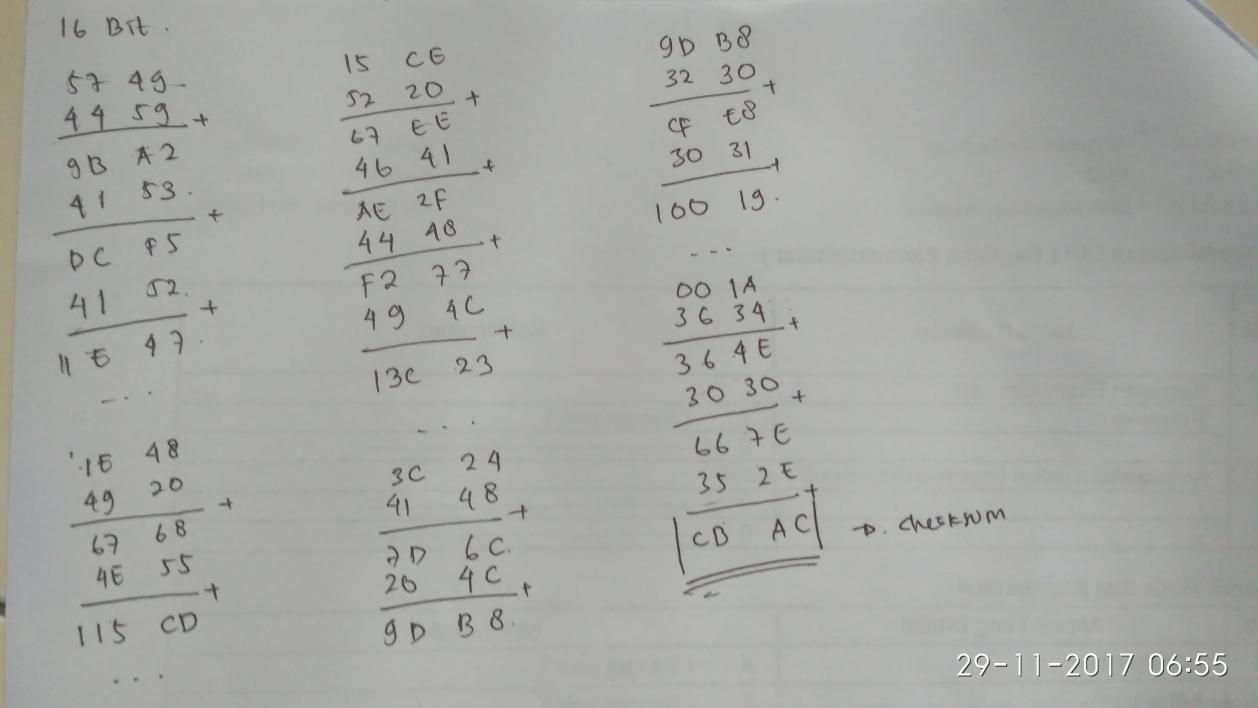 16 Bit.
57 49
44 59 +
9B A2
41 53.
+
DC F5
41 52. +
11E 47.
...
1E 48
49 20 +
67 68
4E 55 +
115 CD
...
15 CE
52 20 +
67 EE
46 41 +
AE 2F
44 48 +
F2 77
49 4C +
13C 23
...
3C 24
41 48 +
7D 6C.
20 4C +
9D B8.
9D B8
32 30 +
CF E8
30 31 +
100 19.
...
00 1A
36 34 +
36 4E
30 30 +
66 7E
35 2E +
CB AC → checksum
29-11-2017 06:55